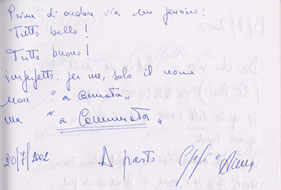 Prima di andar via un pensiero:
Tutto bello!
Tutto buono!
imperfetto, per me, solo il nome
non "a
ma "a Comunata"
20/7/2002 A presto